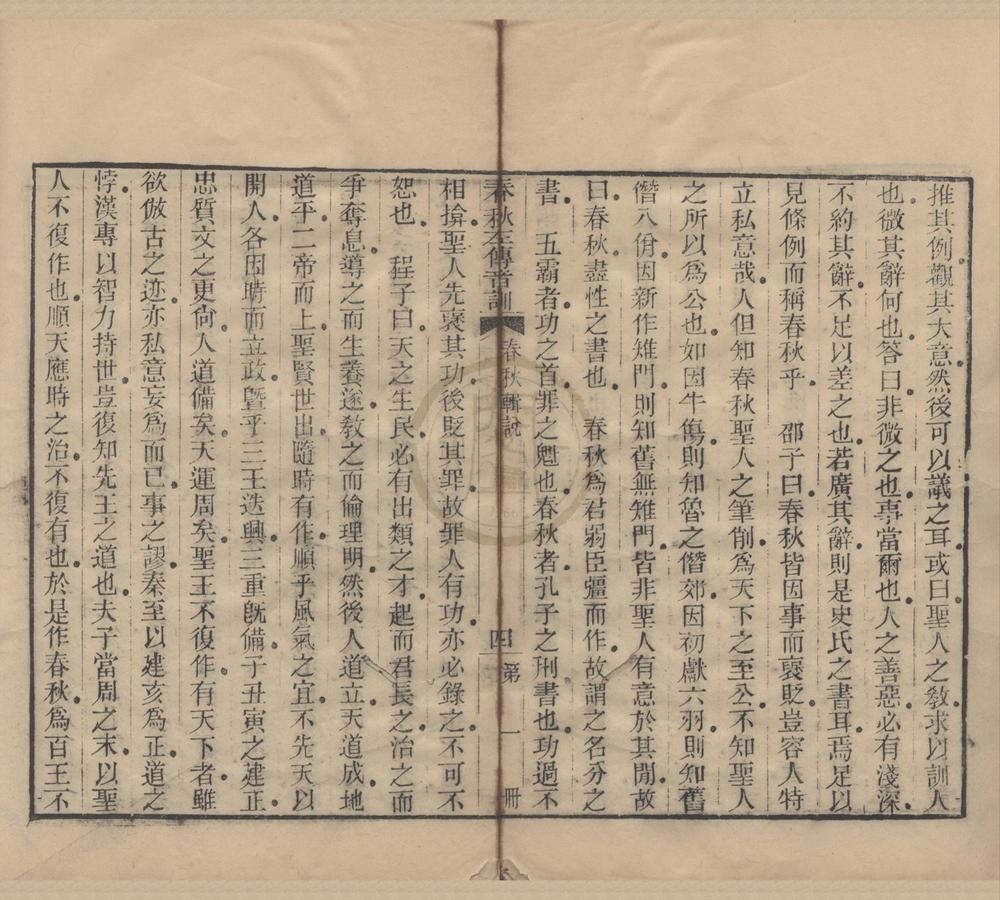 推其例觀其大意然後可以議之耳或曰聖人之敎求以訓人
也微其辭何也答曰非微之也事當爾也人之善惡必有淺深
不約其辭不足以差之也若廣其辭則是史氏之書耳焉足以
見條例而稱春秋乎　邵子曰春秋皆因事而褒貶豈容人特
立私意哉人但知春秋聖人之筆削爲天下之至公不知聖人
之所以爲公也如因牛傷則知魯之僭郊因初獻六羽則知舊
僭八佾因新作雉門則知舊無雉門皆非聖人有意於其閒故
曰春秋盡性之書也　春秋爲君弱臣彊而作故謂之名分之
書　五霸者功之首罪之魁也春秋者孔子之刑書也功過不
春秋左傳音訓　春秋輯說　四　第一冊
相揜聖人先褒其功後貶其罪故罪人有功亦必錄之不可不
恕也　程子曰天之生民必有出類之才起而君長之治之而
爭奪息導之而生養遂敎之而倫理明然後人道立天道成地
道平二帝而上聖賢世出隨時有作順乎風氣之宜不先天以
開人各因時而立政曁乎三王迭興三重旣備子丑寅之建正
忠質文之更尙人道備矣天運周矣聖王不復作有天下者雖
欲倣古之迹亦私意妄爲而已事之謬秦至以建亥爲正道之
悖漢專以智力持世豈復知先王之道也夫子當周之末以聖
人不復作也順天應時之治不復有也於是作春秋爲百王不